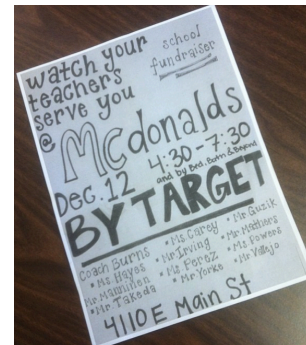 watch your
teachers
serve you
@
school
fundraiser
Mcdonalds
Dec. 12 4:30-7:30
and by Bed, Bath & Beyond
BY TARGET
Coach Burns
• Ms. Hayes
Mr. Manninen
• Mr. Takeda
• Ms. Carey
• Mr. Irving
• Ms Perez
• Mr Yorke
• Mr Gusik
• Mr. Matthers
• Ms. Powers
• Mr Vallejo
4110 E Main St